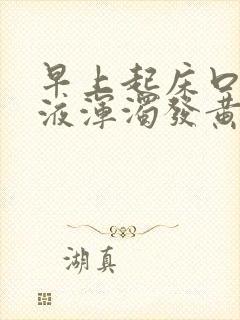 早上起床口
液渾濁發黃
湖真